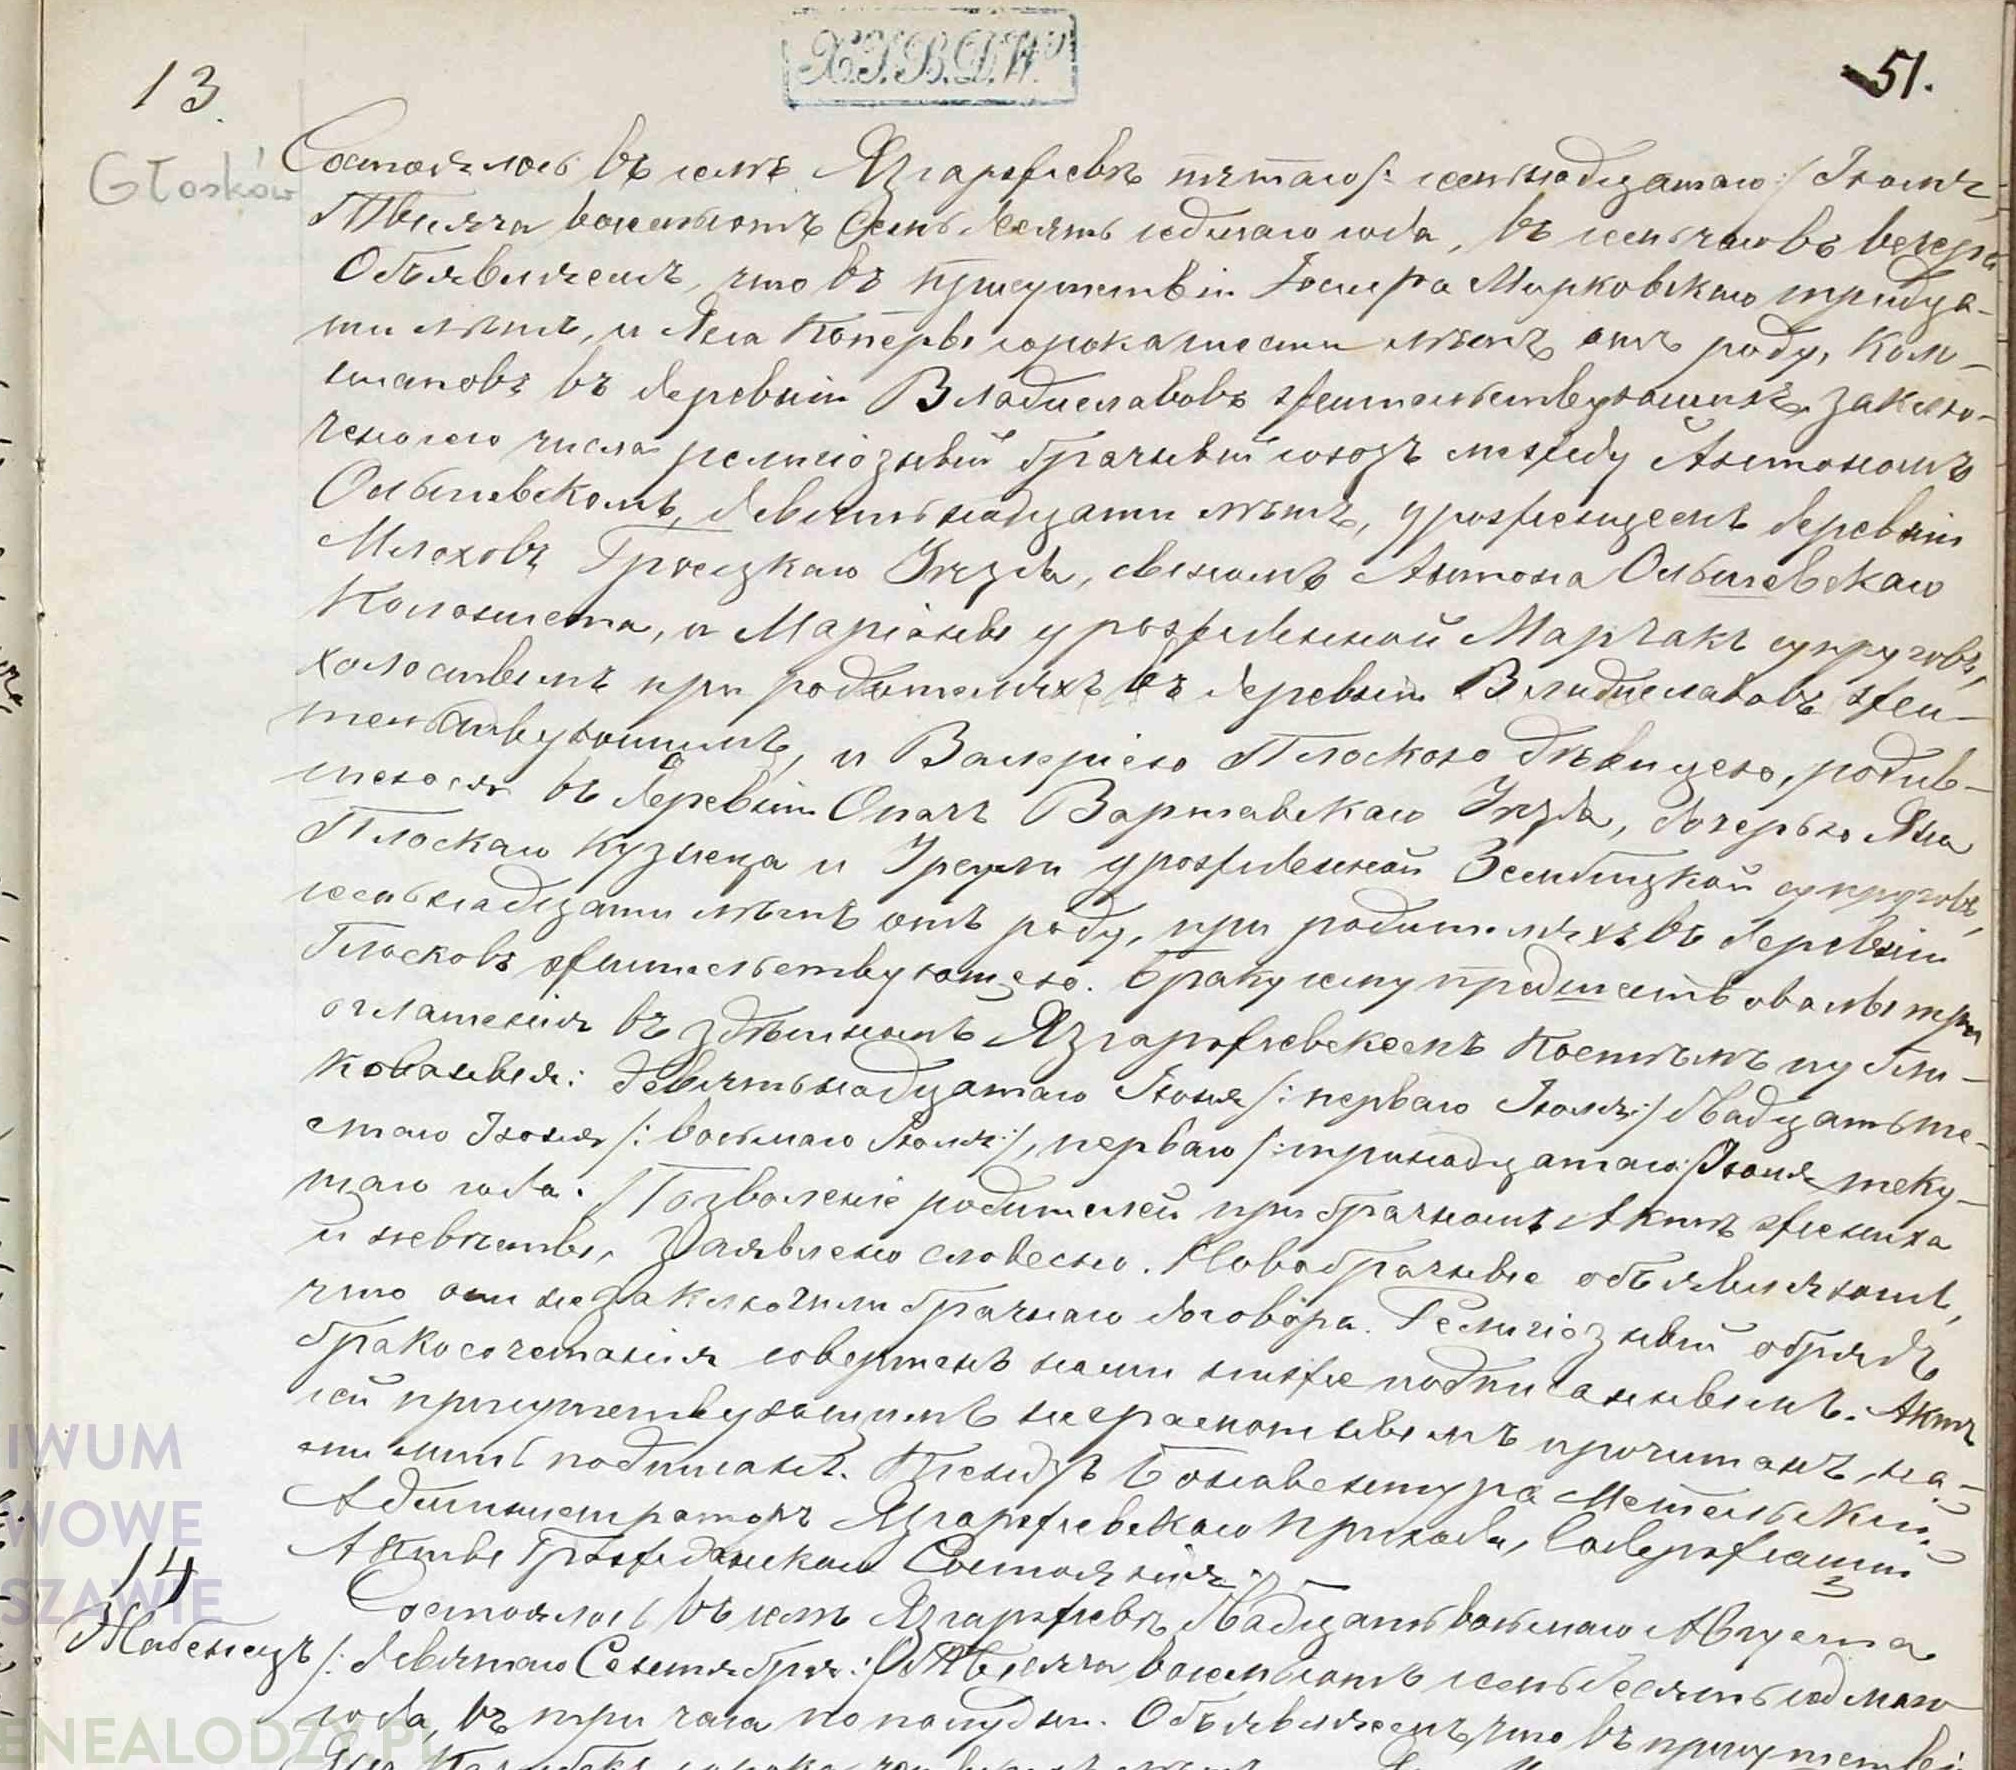 Х.Г.В.D.W.
51.
13.
Głosków
Состоялось въ селѣ Язгаржевѣ пятаго /: семнадцатаго :/ Іюля,
Тысяча восемьсотъ семьдесятъ седьмаго года, въ семь часовъ вечера
Объявляемъ, что въ присутствіи Марковскаго тридца-
ти лѣтъ, и Яна Коперы сорока шести лѣтъ отъ роду, коло-
нистовъ въ деревни Владиславовъ жительствующихъ, заклю-
чено сего числа религіозный брачный союзъ между Антономъ
Ольшевскомъ, девятьнадцати лѣтъ, урожденцемъ деревни
Млоховъ Гроецкаго Уѣзда, сыномъ Антона Ольшевскаго
Колониста, и Маріанны урожденной Марчакъ супруговъ,
холостымъ при родителяхъ въ деревни Владиславовъ жи-
тельствующимъ, и Валеріею Плоскою дѣвицею, родив-
шеюся въ деревни Опачъ Варшавскаго Уѣзда, дочерью Яна
Плоскаго кузнеца и Урсули урожденной Зембицкой супруговъ,
семьнадцати лѣтъ отъ роду, при родителяхъ въ деревни
Глосковъ жительствующею. Браку сему предшествовалы три
оглашенія въ здѣшнымъ Язгаржевскемъ Костѣлѣ публи-
кованыя: девятьнадцатаго Іюня /: перваго Іюля :/ двадцать ше-
стаго Іюня /: восьмаго Іюля :/, перваго /: тринадцатаго :/ Іюля теку-
щаго года. Позволеніе родителей при брачномъ Актѣ жениха
и невѣсты, заявлено словесно. Новобрачные объявляютъ,
что они не заключили брачнаго договора. Религіозный обрядъ
бракосочетанія совершенъ нами ниже подписаннымъ. Актъ
сей присутствующимъ неграмотнымъ прочитанъ, на-
ми подписанъ. Ксендзъ Бонавентура Метельскій
Администраторъ Язгаржевскаго прихода, Содержащій
Акты Гражданскаго Состоянія.
14
Жабенецъ
Состоялось въ селѣ Язгаржевѣ, двадцать восьмаго Августа
/: девятаго Сентября :/ Тысяча восемьсотъ семьдесятъ седьмаго
года, въ три часа по полудни. Объявляемъ, что въ присутствіи
IWUM
WOWE
SZAWIE
ENEALODZY.PL